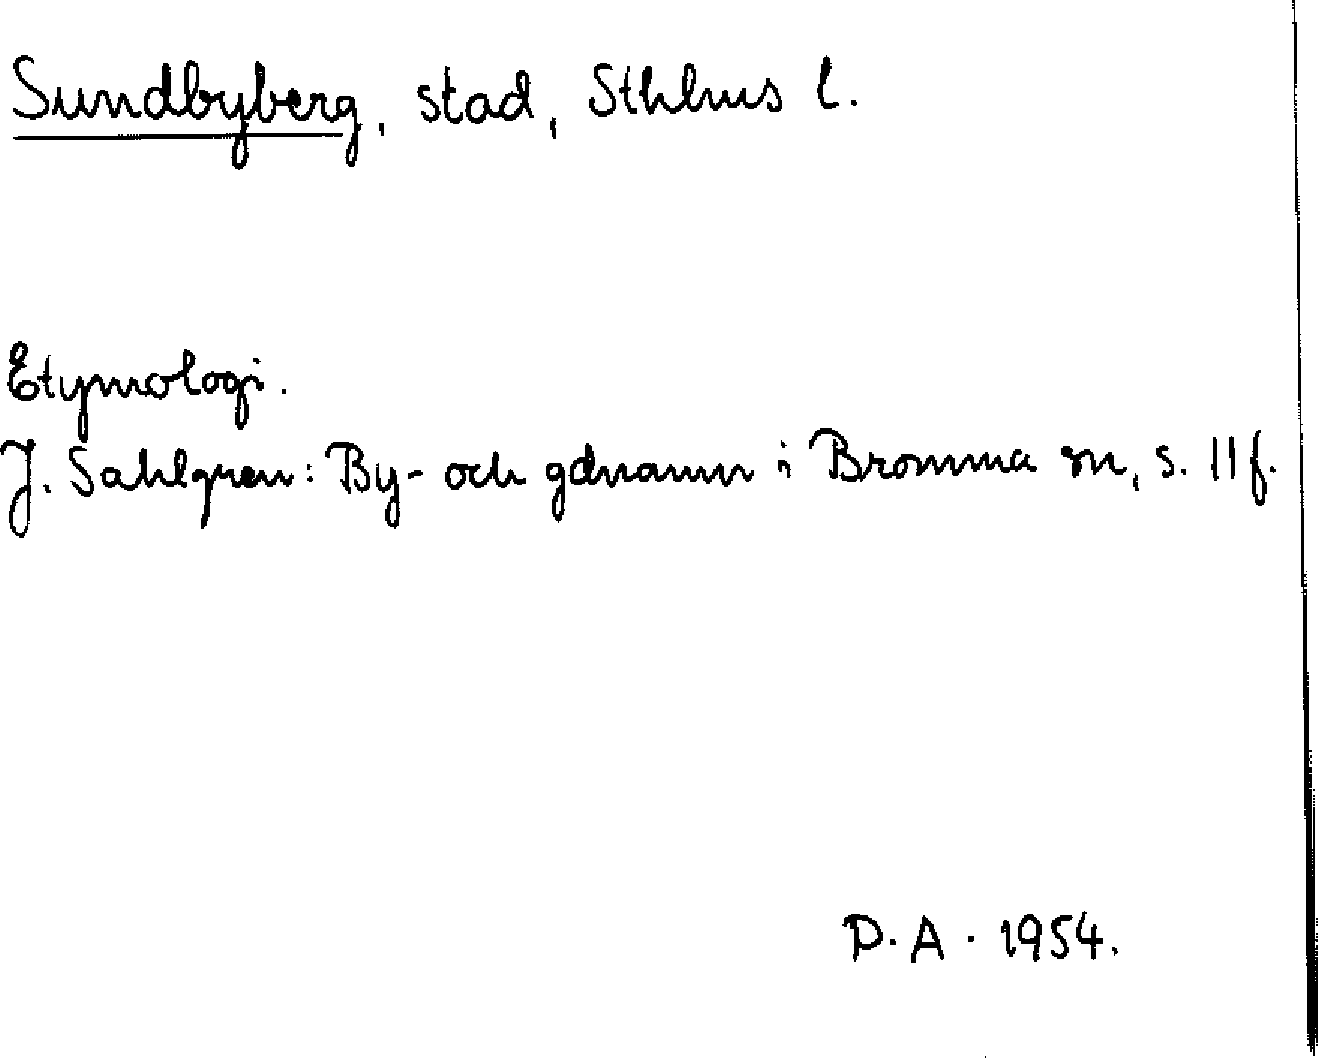 Sundbyberg, stad, Sthlms l.
Etymologi.
J. Sahlgren: By- och gdnamn i Bromma sn, s. 11 f.
D. A. 1954.